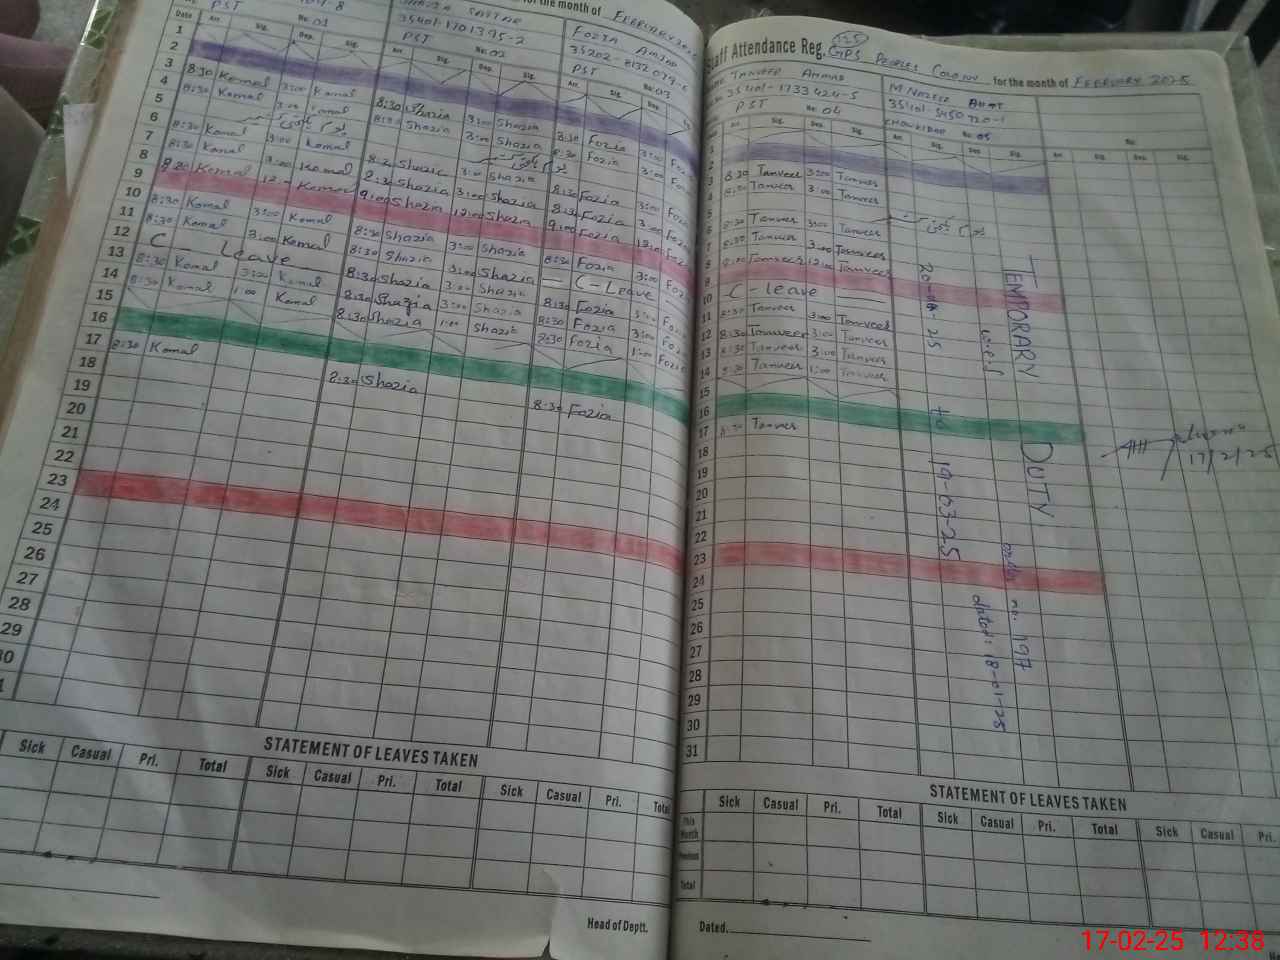 for the month of FEBRUARY
PST No. 01
35401-1701395-2
PST No. 02
FOZIA AMJAD
PST No. 03
Date Arr. Sig. Dep. Sig. Arr. Sig. Dep. Sig. Arr. Sig. Dep.
1
2
3 8:30 Komal 3:00 Komal 8:30 Shazia 3:00 Shazia 8:30 Fozia 3:00
4 8:30 Komal 3:00 Komal 8:30 Shazia 3:00 Shazia 8:30 Fozia 3:00
5
6 8:30 Komal 3:00 Komal 8:30 Shazia 3:00 Shazia 8:30 Fozia 3:00
7 8:30 Komal 3:00 Komal 8:30 Shazia 3:00 Shazia 8:30 Fozia 3:00
8 8:20 Komal 12:00 Komal 9:00 Shazia 12:00 Shazia 9:00 Fozia 12:00
9
10 8:30 Komal 3:00 Komal 8:30 Shazia 3:00 Shazia 8:30 Fozia 3:00
11 8:30 Komal 3:00 Komal 8:30 Shazia 3:00 Shazia C-Leave
12 C - Leave 8:30 Shazia 3:00 Shazia 8:30 Fozia 3:00
13 8:30 Komal 3:00 Komal 8:30 Shazia 3:00 Shazia 8:30 Fozia 3:00
14 8:30 Komal 1:00 Komal 8:30 Shazia 1:00 Shazia 8:30 Fozia 1:00
15
16
17 8:30 Komal 8:30 Shazia 8:30 Fozia
18
19
20
21
22
23
24
25
26
27
28
29
30
STATEMENT OF LEAVES TAKEN
Sick Casual Pri. Total Sick Casual Pri. Total Sick Casual Pri. Total
Head of Deptt.
Staff Attendance Reg. GPS PEOPLES COLONY for the month of FEBRUARY 2025
TANVEER AHMAD
35401-1733424-5
PST No. 04
35401-5450720-1
CHOWKIDAR No. 05
No.
Arr. Sig. Dep. Sig. Arr. Sig. Dep. Sig. Arr. Sig. Dep. Sig.
1
2
3 8:30 Tanveer 3:00 Tanveer
4 8:30 Tanveer 3:00 Tanveer
5
6 8:30 Tanveer 3:00 Tanveer
7 8:30 Tanveer 3:00 Tanveer
8 Tanveer 12:00 Tanveer
9
10 C - Leave
11 8:30 Tanveer 3:00 Tanveer
12 8:30 Tanveer 3:00 Tanveer
13 8:30 Tanveer 3:00 Tanveer
14 8:30 Tanveer 1:00 Tanveer
15
16
17 8:30 Tanveer
18
19
20
21
22
23
24
25
26
27
28
29
30
31
TEMPORARY DUTY
order no. 197
w.e.f
dated: 18-01-25
to 19-03-25
17/2/25
STATEMENT OF LEAVES TAKEN
Sick Casual Pri. Total Sick Casual Pri. Total Sick Casual Pri.
This Month
Previous
Total
Dated.
17-02-25 12:38